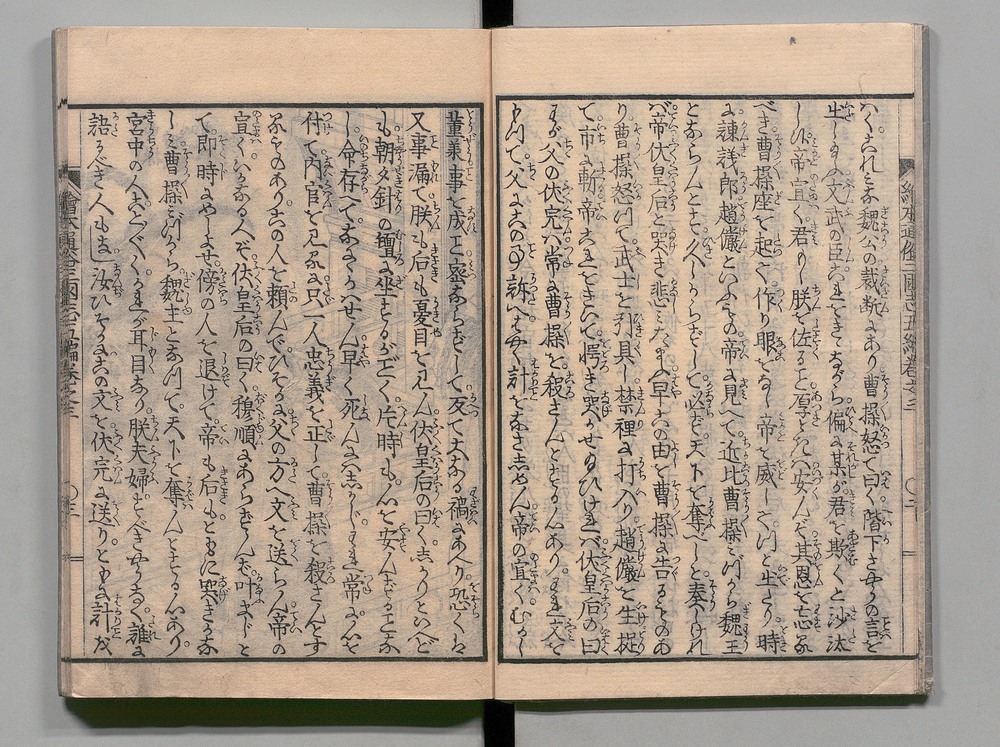 くこれミな魏公の裁断にあり曹操怒て曰く階下さやうの言を
文武の臣これをきゝ偏に某が君を欺くと沙汰
し候帝宣く君もし朕を佐ると安んぞ其恩を忘る
べき曹操座を起て作り眼をなし帝を威して門を出たり時
に諫議郎趙儼といふもの帝に見へて近比曹操ミづから魏王
とならんとす久しからずして必ず天下を奪べしと奏しけれ
バ帝伏皇后と哭き悲ミ玉ふ早この由を曹操に告るものあ
り曹操怒つて武士を引具し禁裡に打入り趙儼を生捉
て市に斬帝これをきいて愕き哭かせ玉ひけれバ伏皇后の曰
わが父の伏完ハ常に曹操を殺さんとする心ありわれ文を
以て父にこの事訴へ計をなさしめん帝の宣くむかし
董承事を成こと密ならずして反て大なる禍にあへり恐くハ
又事漏て朕も后も憂目を見ん伏皇后の曰くしかりといへど
も朝夕針の氈に坐するがごとく片時も心を安んずることな
し命存へてあらんよりハ早く死んにハしかじわれ常に心を
付て内官を見るに只一人忠義を正して曹操を殺さんとす
るものありこの人を頼んでひそかに父の方へ文を送らん帝の
宣くいかなる人ぞ伏皇后の曰く穆順にあらずんバ叶まじと
て即時にめしよせ傍の人を退けて帝も后もともに哭き玉ひ
曹操ミづから魏王となつて天下を奪んとする心あり
宮中の人ことごとくかれが耳目なり朕夫婦すべきやうなし誰に
語るべき人もなし汝ひそかにこの文を伏完に送りともに計を
繪本通俗三國志五編巻之三